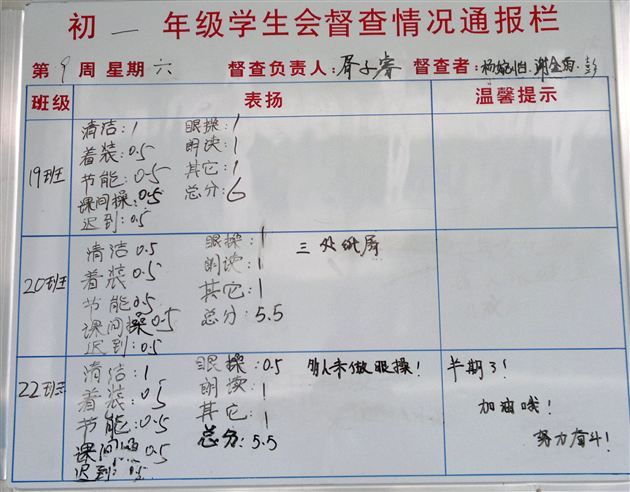 初一年级学生会督查情况通报栏
第9周 星期六 督查负责人: 督查者:
班级 表扬 温馨提示
19班
清洁:1 眼操:1
着装:0.5 朗读:1
节能:0.5 其它:1
课间操:0.5 总分:6
迟到:0.5
20班
清洁 0.5 眼操:1 三处纸屑
着装:0.5 朗读:1
节能:0.5 其它:1
课间操 0.5 总分:5.5
迟到:0.5
22班
清洁:1 眼操:0.5 多人未做眼操! 半期了!
着装:0.5 朗读:1 加油哦!
节能:0.5 其它:1 努力奋斗!
课间操 0.5 总分:5.5
迟到:0.5